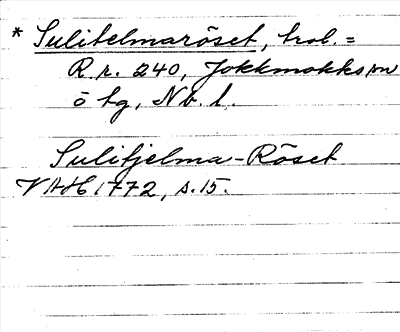 * Sulitelmaröset, trol. =
R. r. 240, Jokkmokks sn
ö tg, Nb. l.
Sulitjelma-Röset
VAH 1772, s. 15.